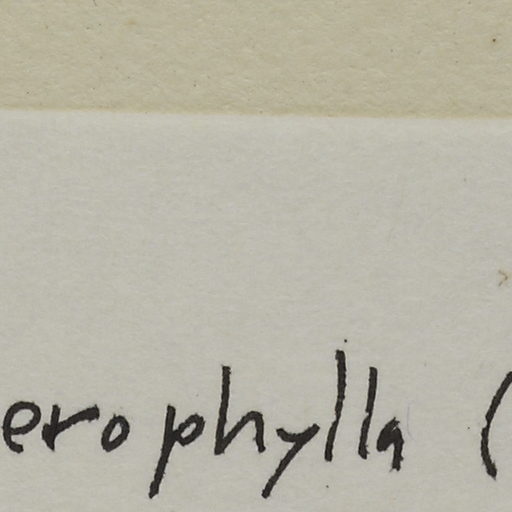 erophylla (